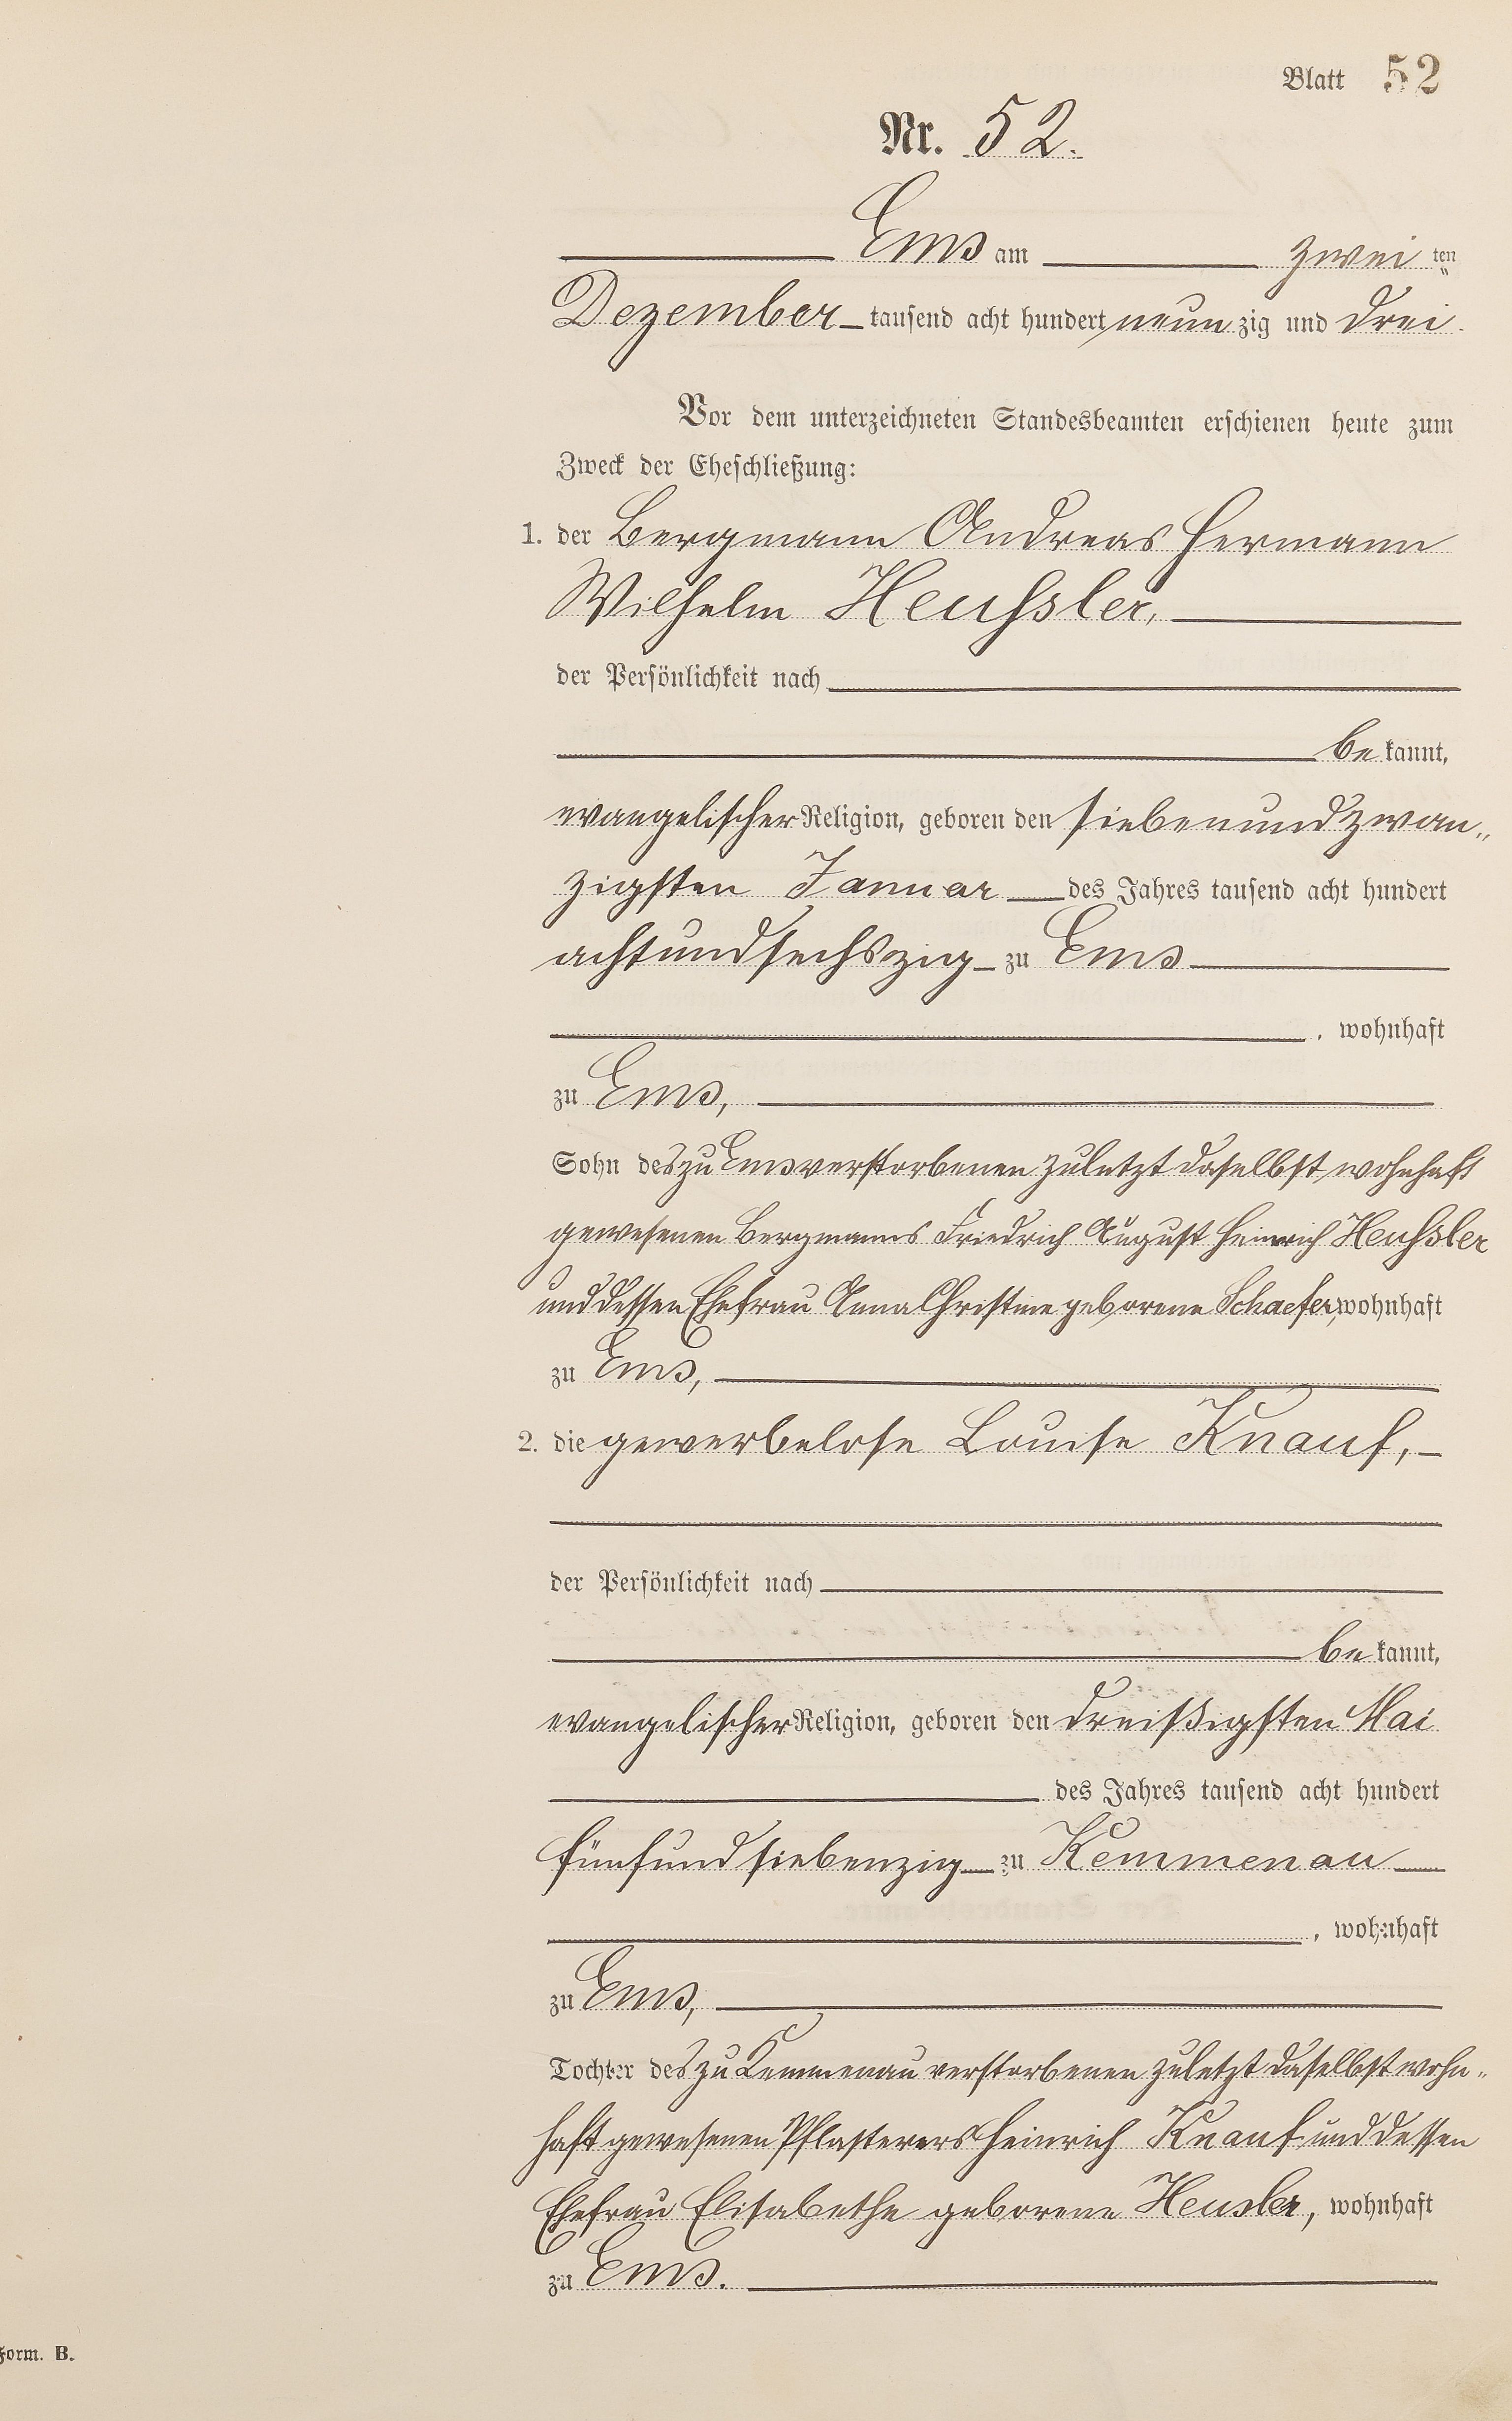 Blatt 52
Nr. 52.
Ems am zwei ten
Dezember tausend acht hundert neun zig und drei.
Vor dem unterzeichneten Standesbeamten erschienen heute zum
Zweck der Eheschließung:
1. der Bergmann Andreas Hermann
Wilhelm Heussler,
der Persönlichkeit nach
be kannt,
evangelischer Religion, geboren den siebenundzwan-
zigsten Januar des Jahres tausend acht hundert
achtundsechszig zu Ems
, wohnhaft
zu Ems,
Sohn des zu Ems verstorbenen zuletzt daselbst wohnhaft
gewesenen Bergmanns Friedrich August Heinrich Heussler
und dessen Ehefrau Anna Christine geborene Schaefer, wohnhaft
zu Ems,
2. die gewerbelose Louise Knauf,
der Persönlichkeit nach
be kannt,
evangelischer Religion, geboren den dreißigsten Mai
des Jahres tausend acht hundert
fünfundsiebenzig zu Kemmenau
, wohnhaft
zu Ems,
Tochter des zu Kemmenau verstorbenen zuletzt daselbst wohn-
haft gewesenen Pflasterers Heinrich Knauf und dessen
Ehefrau Elisabethe geborene Heusler, wohnhaft
zu Ems.
Form. B.